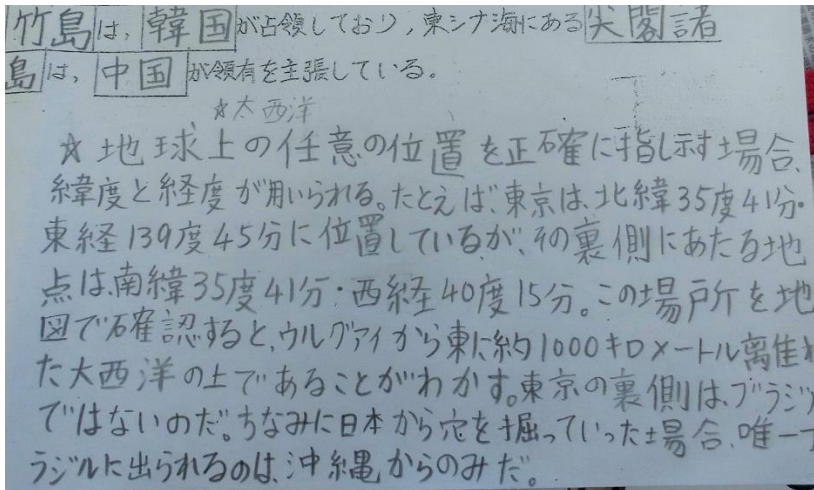 竹島は，韓国が占領しており，東シナ海にある尖閣諸
島は，中国が領有を主張している。
☆太西洋
☆地球上の任意の位置を正確に指し示す場合、
緯度と経度が用いられる。たとえば、東京は、北緯35度41分・
東経139度45分に位置しているが、その裏側にあたる地
点は、南緯35度41分・西経40度15分。この場所を地
図で確認すると、ウルグアイから東に約1000キロメートル離れ
た大西洋の上であることがわかす。東京の裏側は、ブラジ
ではないのだ。ちなみに日本から穴を掘っていった場合、唯一ブ
ラジルに出られるのは、沖縄からのみだ。